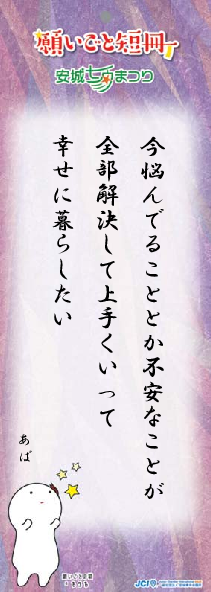 願いごと短冊
安城七夕まつり
今悩んでることとか不安なことが
全部解決して上手くいって
幸せに暮らしたい
あば
JCI